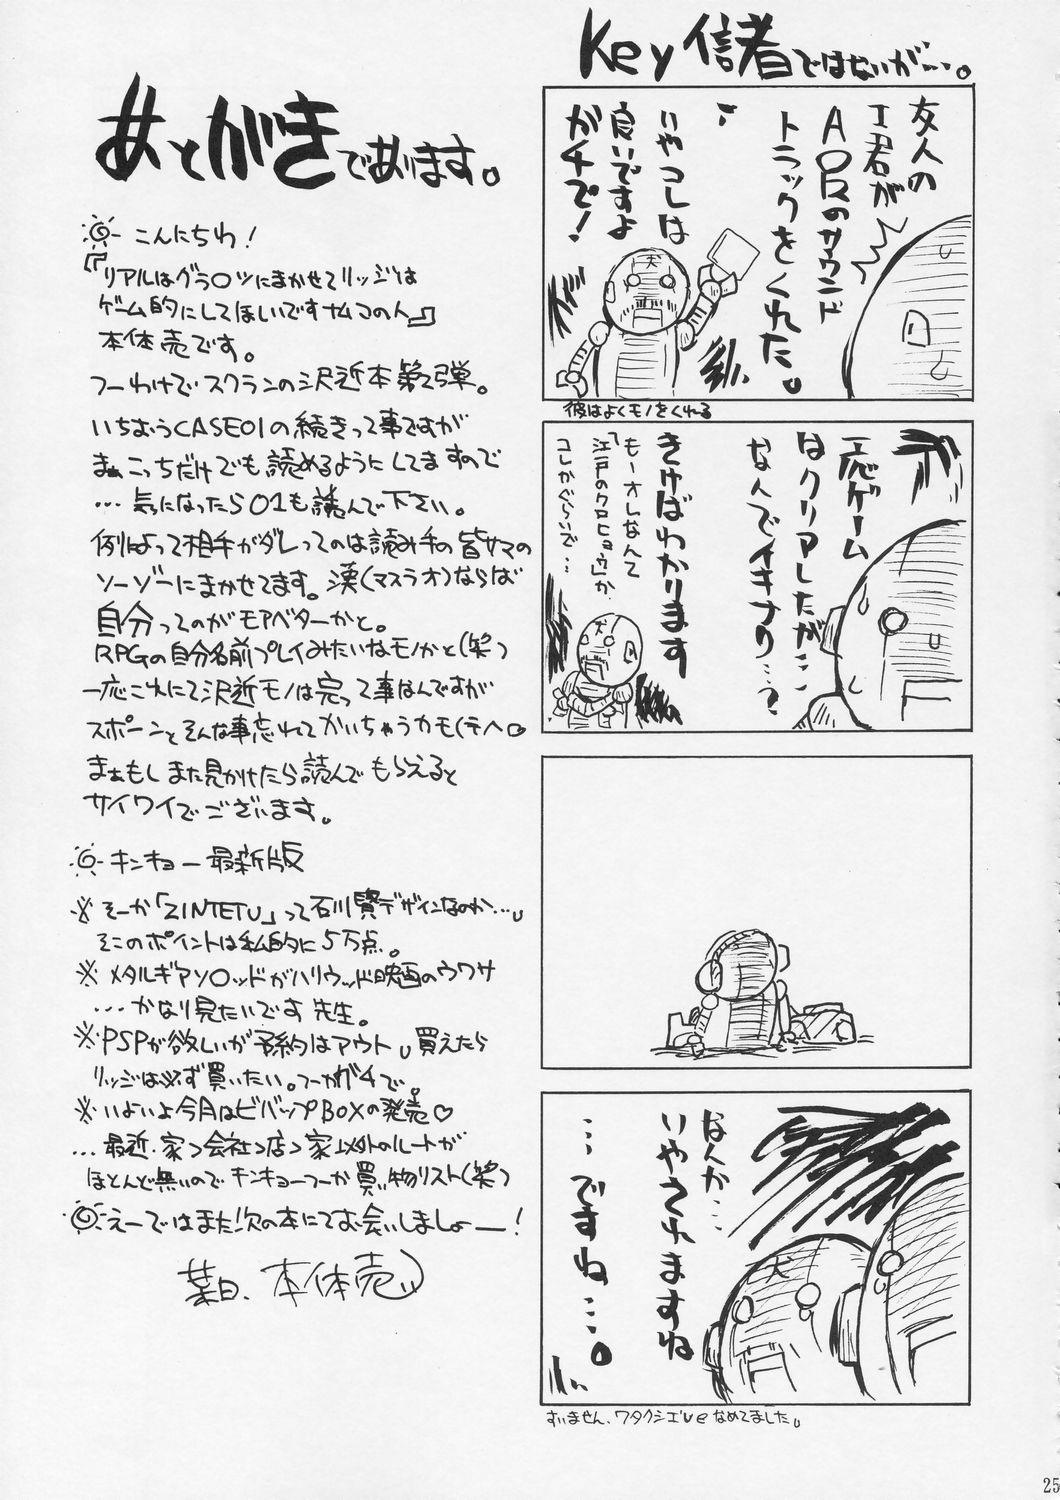 あとがきであります。
こんにちわ！
『リアルはグラ○ツにまかせてリッジは
ゲーム的にしてほしいですナムコの人』
本体売です。
つーわけでスクランの沢近本第2弾。
いちおうCASE01の続きって事ですが
まぁこっちだけでも読めるようにしてますので
…気になったら01も読んで下さい。
例によって相手がダレってのは読み手の皆サマの
ソーゾーにまかせてます。漢(マスラオ)ならば
自分ってのがモアベターかと。
RPGの自分名前プレイみたいなモノかと(笑)
一応これにて沢近モノは完って事なんですが
スポーンとそんな事忘れてかいちゃうカモ(テヘ。
まぁもしまた見かけたら読んでもらえると
サイワイでございます。
キンキョー最新版
※そーか「ZINTETU」って石川賢デザインなのか…。
そこのポイントは私的に5万点。
※メタルギアソ○ッドがハリウッド映画のウワサ
…かなり見たいです先生。
※PSPが欲しいが予約はアウト。買えたら
リッジは必ず買いたい。つーかガチで。
※いよいよ今月はビバップBOXの発売♡
…最近、家→会社→店→家以外のルートが
ほとんど無いのでキンキョーつーか買い物リスト(笑)
えーではまた次の本にてお会いしましょー！
葉日、本体売
Key信者ではないが…。
友人の
I君が
AIRのサウンド
トラックをくれた。
いやコレは
良いですよ
ガチで！
彼はよくモノをくれる
一応ゲーム
はクリアしたが…
なんでイキナリ…？
きけばわかります
もーオレなんて
「江戸のクロヒョウ」か、
コレかぐらいで…
なんか…
いやされますね
…ですね…。
すいません、ワタクシエVeなめてました。
25